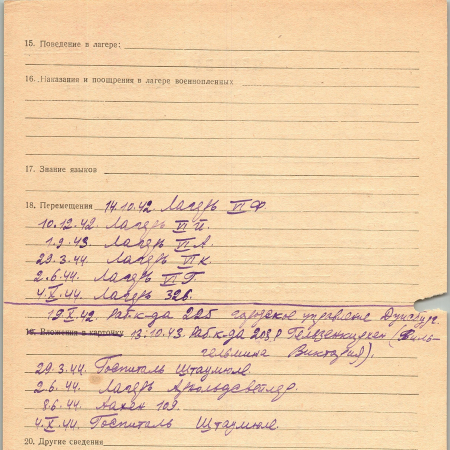 15. Поведение в лагере:
16. Наказания и поощрения в лагере военнопленных
17. Знание языков
18. Перемещения 14.10.42 Лагерь VI Ф
10.12.42 Лагерь VI й.
1.9.43 Лагерь VI А.
29.3.44 Лагерь VI К.
2.6.44. Лагерь VI Г
4.X.44. Лагерь 326.
19.X.42. Раб к-да 225 городское управление
19. Вложения в карточку 13.10.43. Раб к-да 203 Р Гельзенкирхен (Виль-
гельмина Виктория).
29.3.44. Госпиталь Штаумюле.
2.6.44. Лагерь Арнольдсвейлер.
8.6.44. Аахен 109.
4.X.44. Госпиталь Штаумюле.
20. Другие сведения